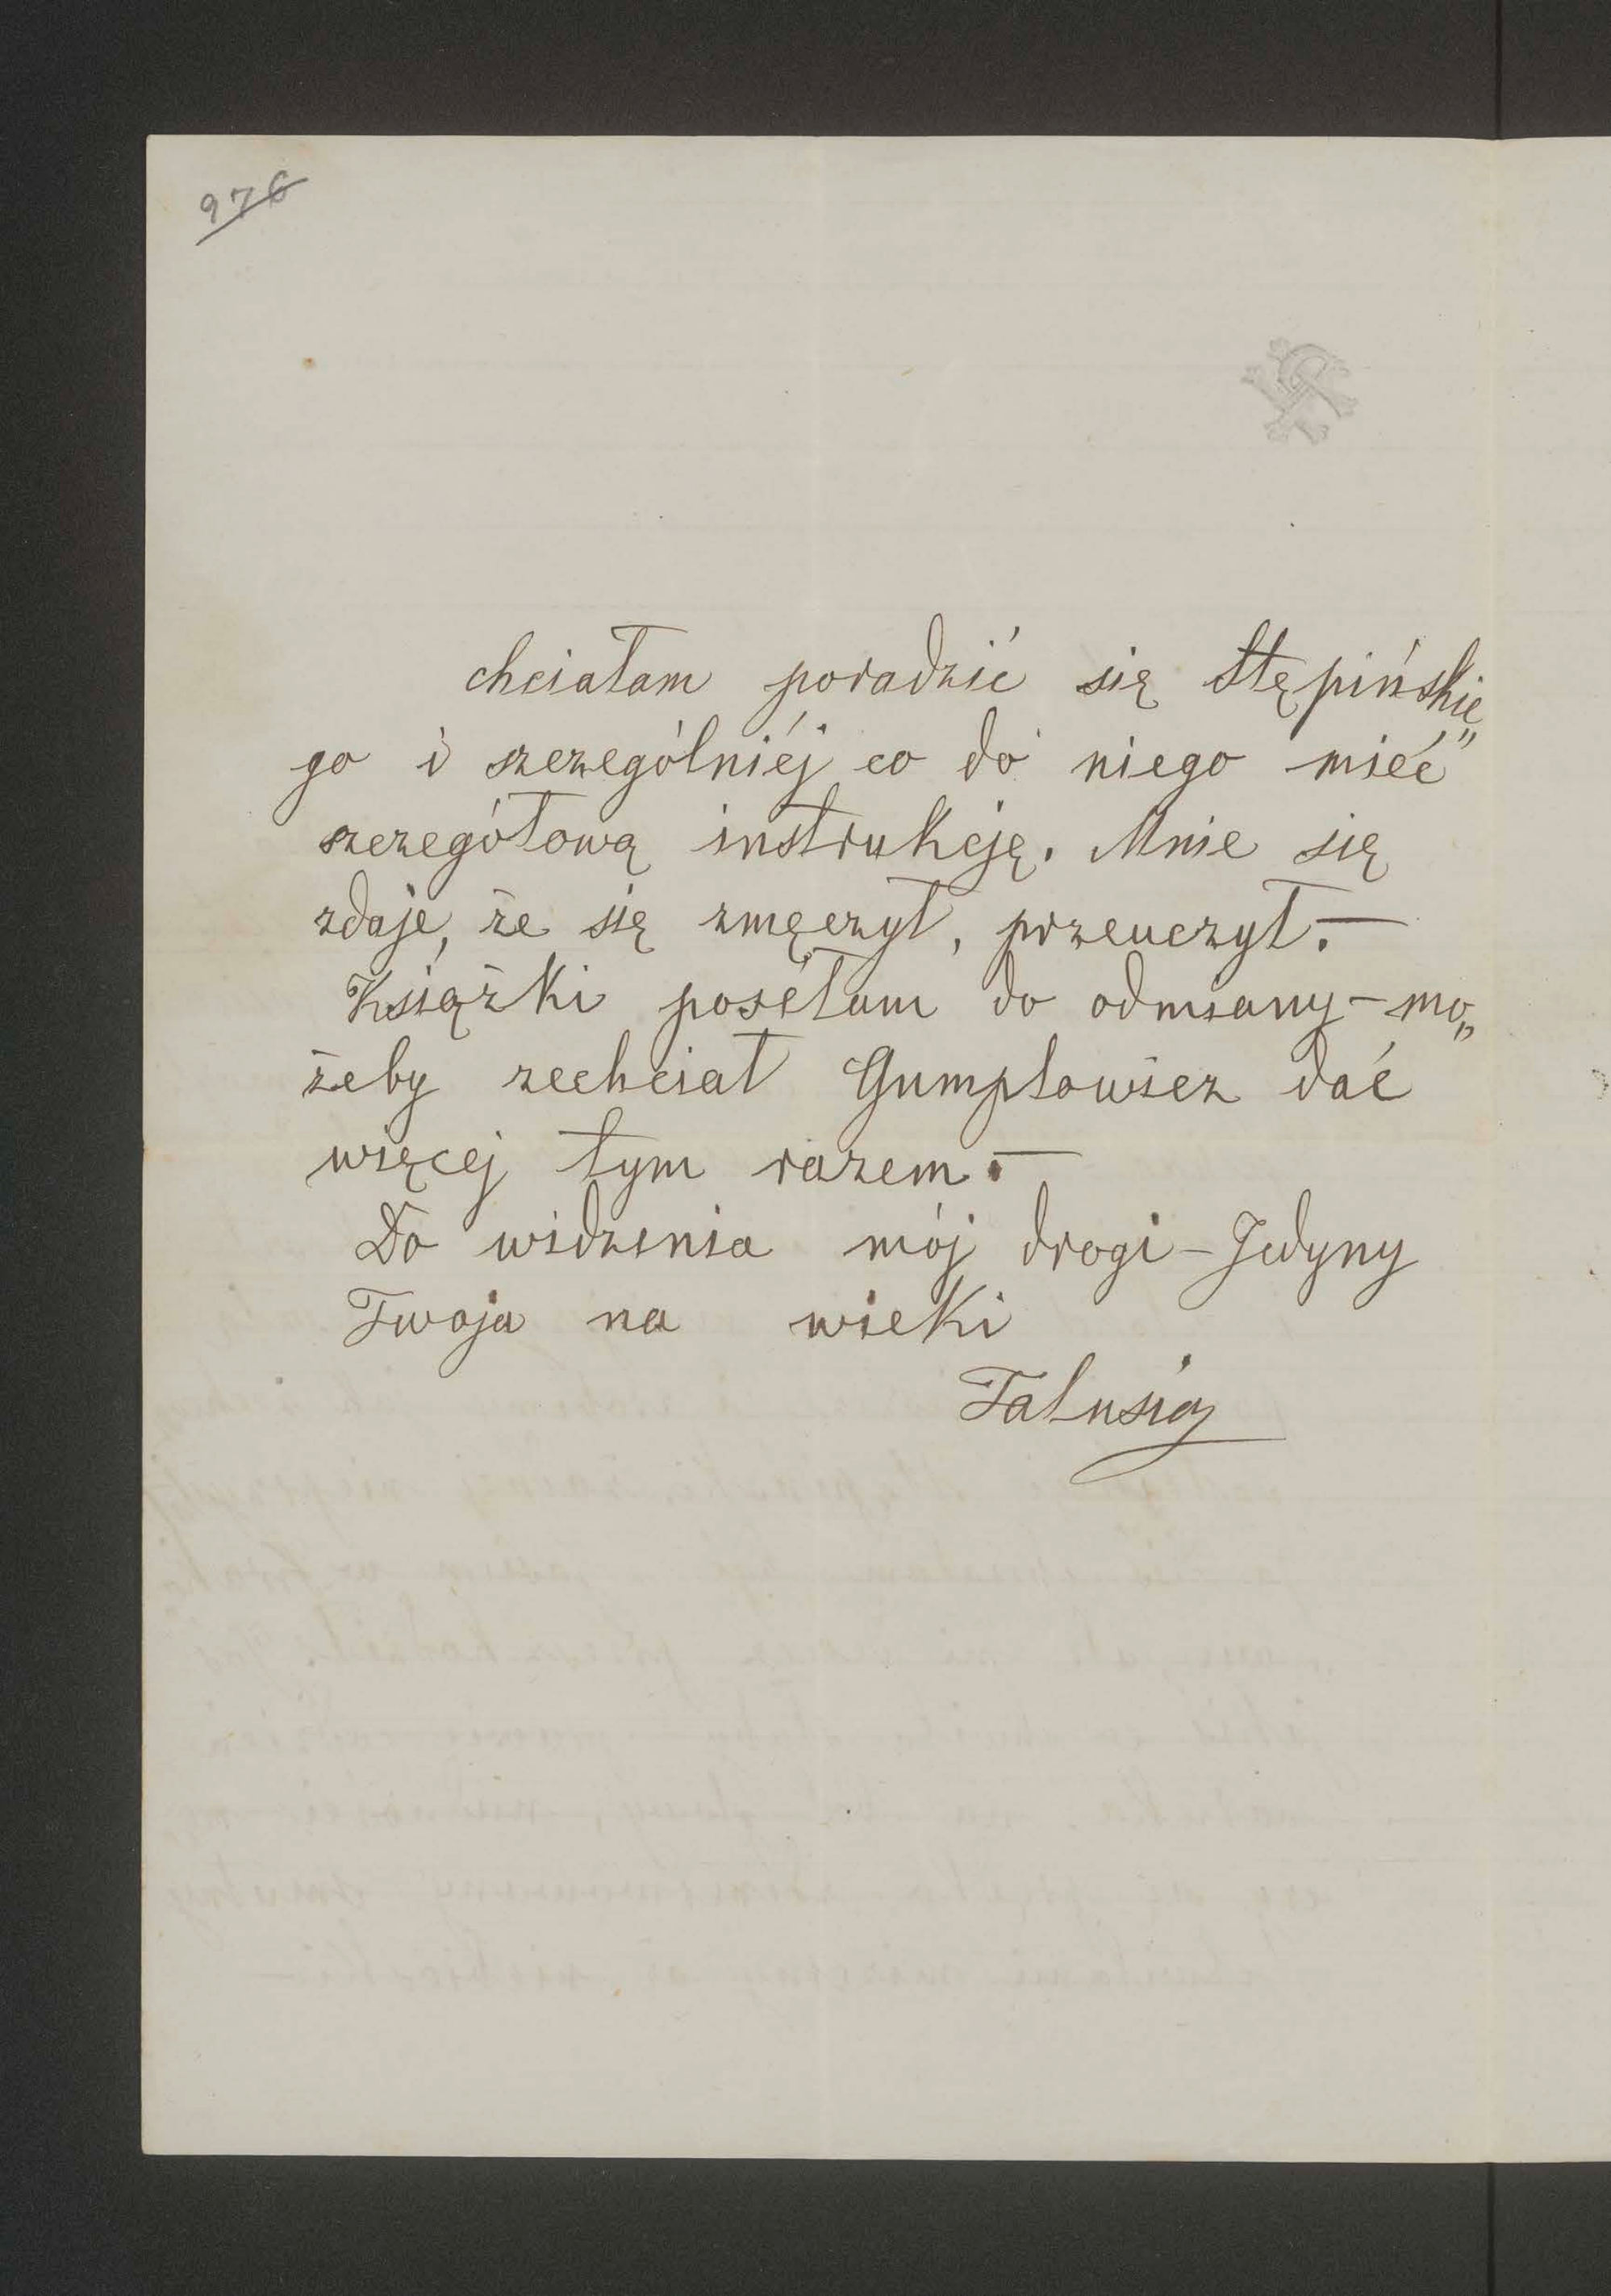 976
chciałam poradzić się Stępińskie„
go i szczególniéj co do niego mieć
szczegółową instrukcję. Mnie się
zdaje, że się zmęczył, przeuczył. —
Książki posełam do odmiany – mo„
żeby zechciał Gumplowicz dać
więcej tym razem. —
Do widzenia mój drogi – Jedyny
Twoja na wieki